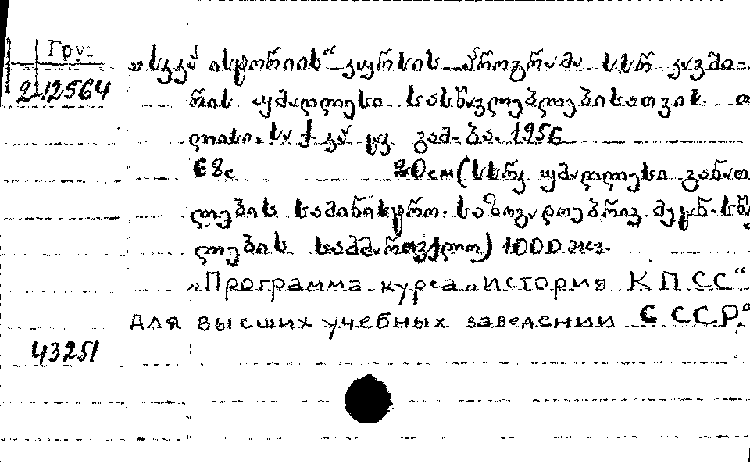 Груз
2-12564
„სკკპ ისტორიის“ კურსის პროგრამა სსრ კავში-
რის უმაღლესი სასწავლებლებისათვის თ
ბილისი. სა ქ კპ ცკ გამ-ბა. 1956
68с 20см (სსრკ უმაღლესი განათ
ლების სამინისტრო. საზოგადოებრივ მეცნ. სწ
ლების სამმართველო) 1000 экз.
„Программа курса „история КПСС“
для высших учебных заведении СССР.“
43251